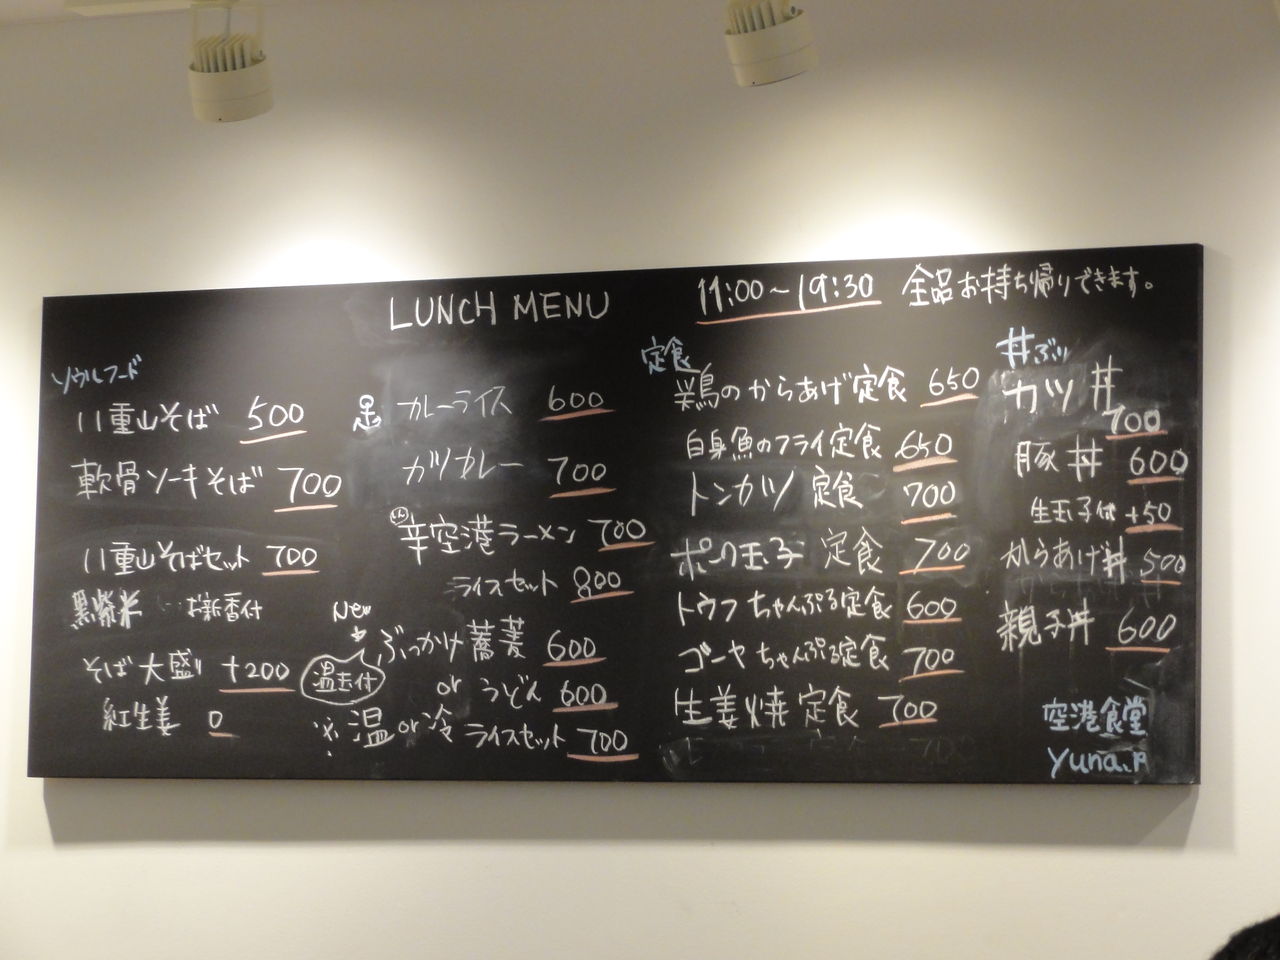 LUNCH MENU
11:00~19:30 全品お持ち帰りできます。
ソウルフード
八重山そば 500
軟骨ソーキそば 700
八重山そばセット 700
黒紫米 お新香付
そば大盛り +200
紅生姜 0
カレーライス 600
カツカレー 700
辛空港ラーメン 700
ライスセット 800
New
温玉付
ぶっかけ蕎麦 600
or うどん 600
※温or冷 ライスセット 700
定食
鶏のからあげ定食 650
白身魚のフライ定食 650
トンカツ 定食 700
ポーク玉子 定食 700
トウフちゃんぷる定食 600
ゴーヤちゃんぷる定食 700
生姜焼定食 700
丼ぶり
カツ丼 700
豚丼 600
生玉子付 +50
からあげ丼 500
親子丼 600
空港食堂